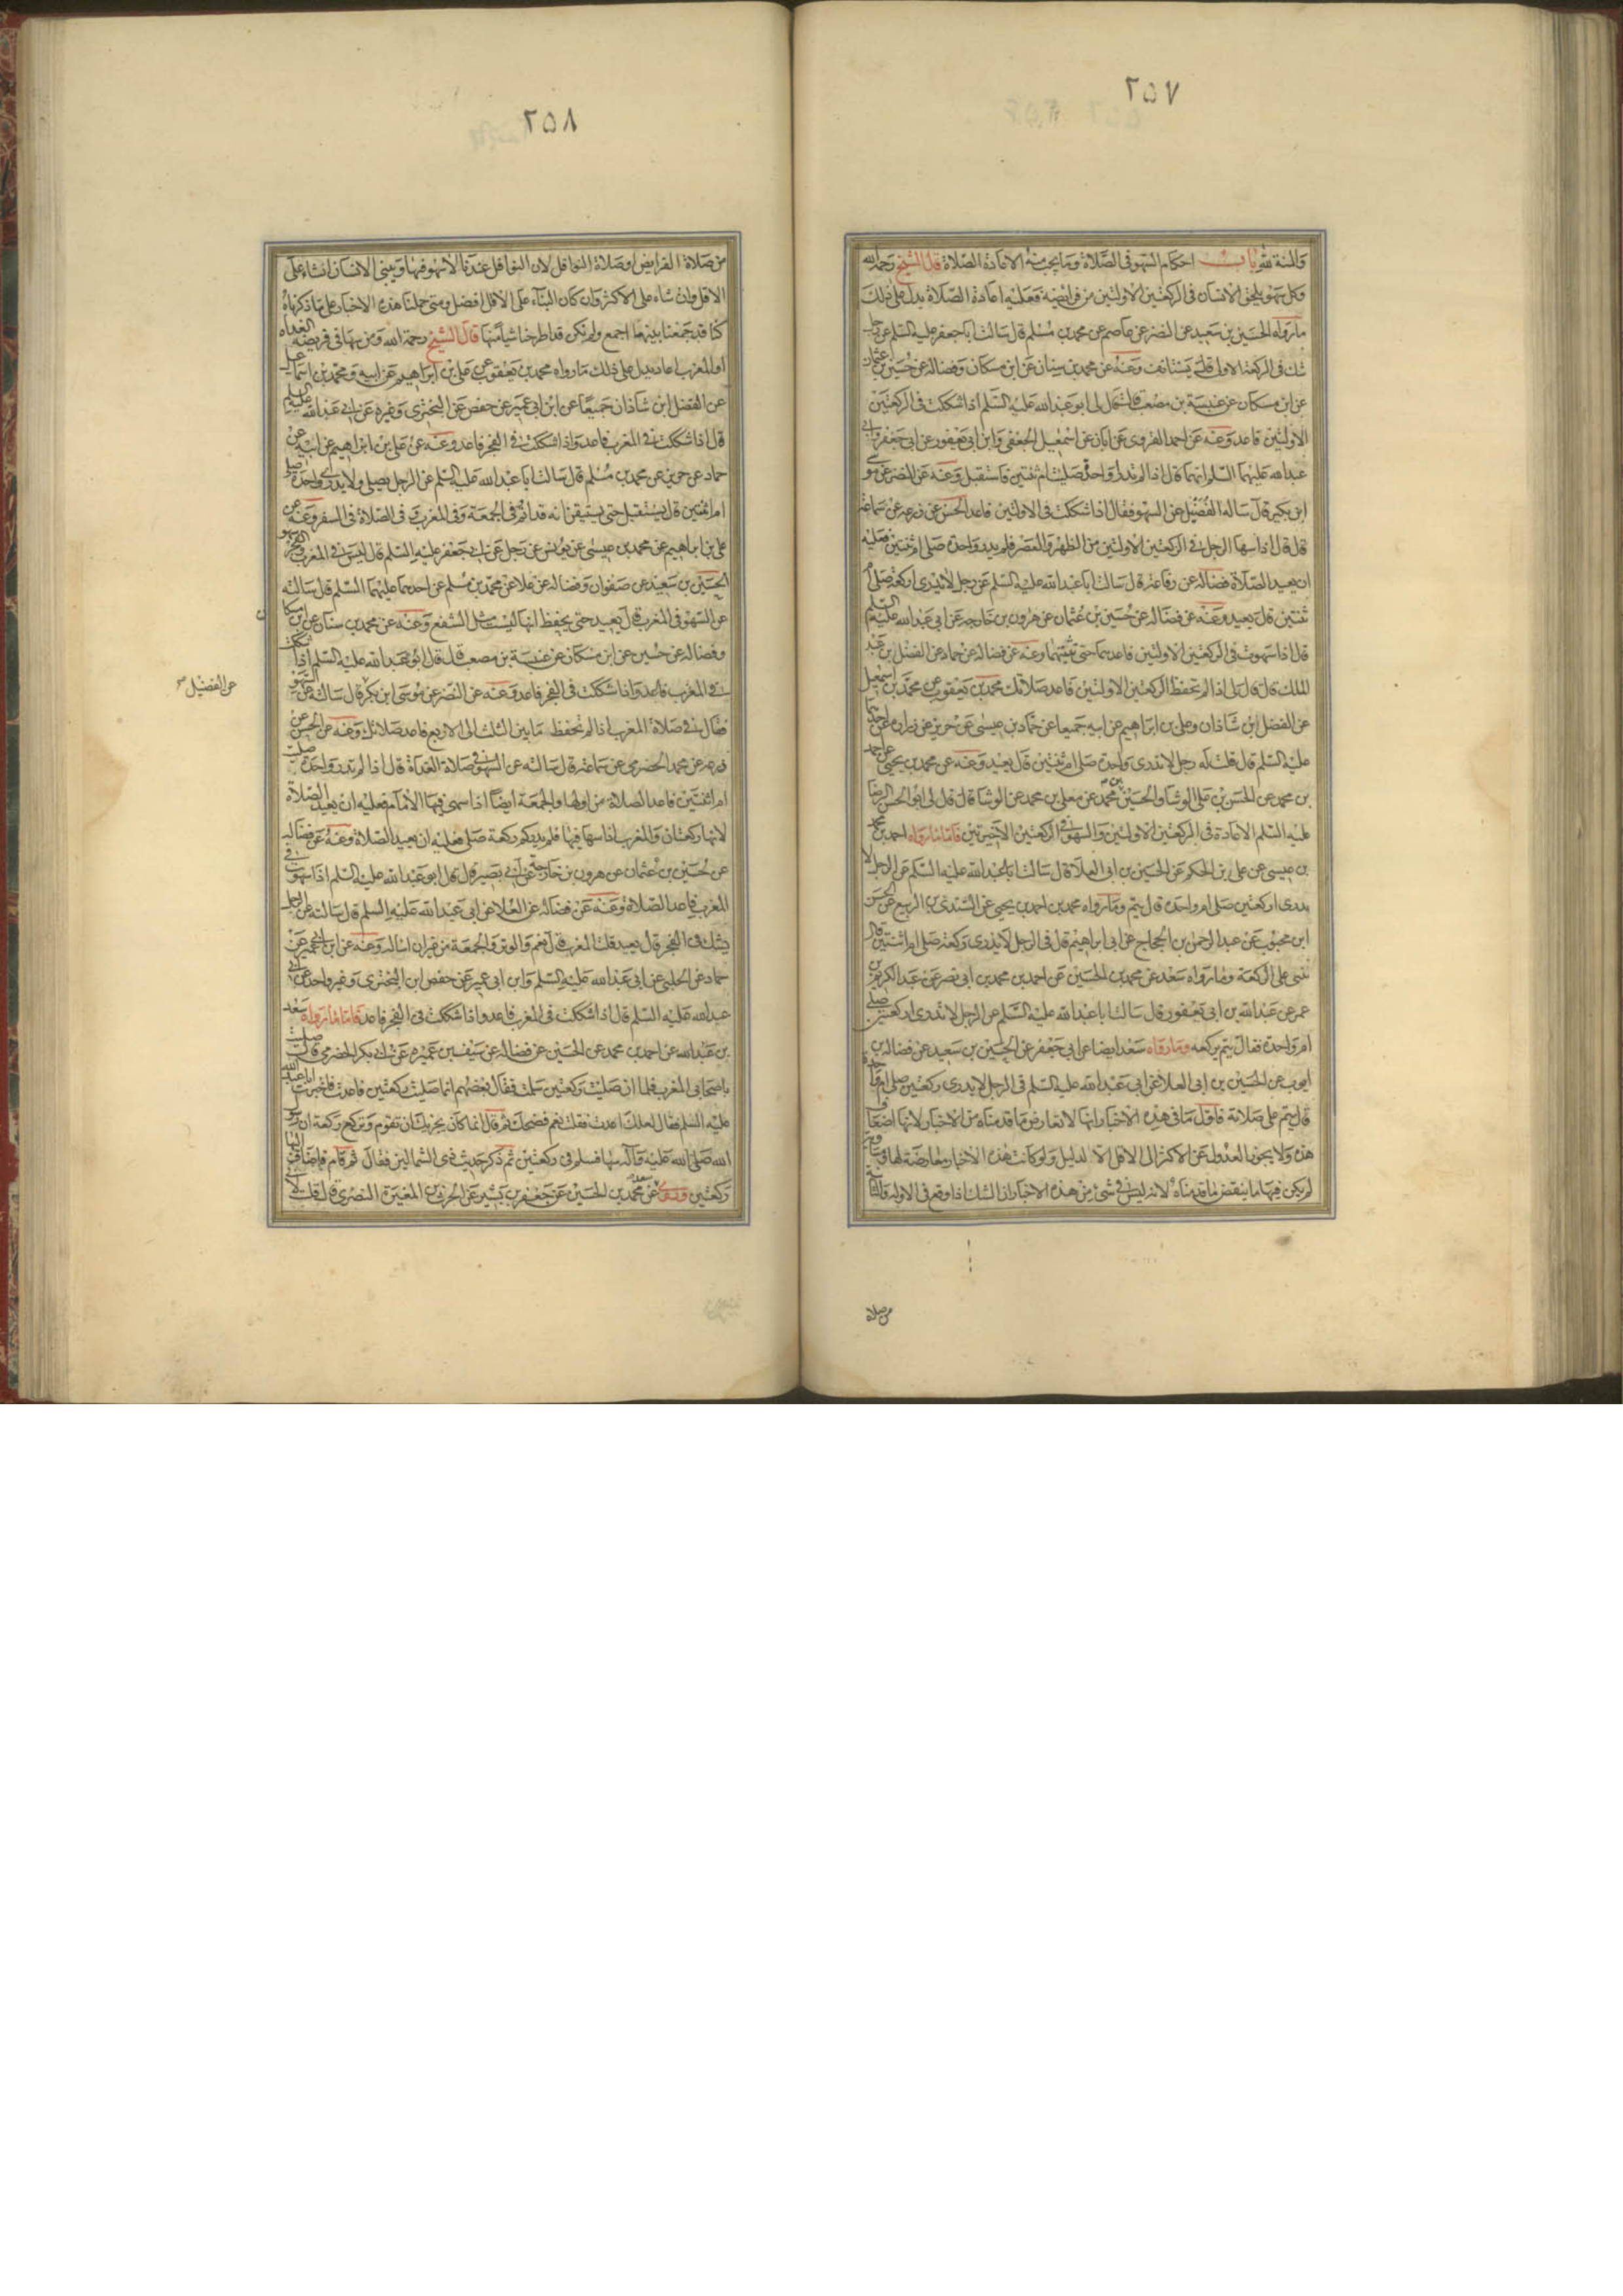 ٢٥٧
والمنة لله باب احكام السهو في الصلاة وما يجب منه الاعادة الصلاة قال الشيخ رحمه الله
وكل سهو يلحق الانسان في الركعتين الاولتين من فرائضه فعليه اعادة الصلاة يدل على ذلك
ما رواه الحسين بن سعيد عن النضر عن عاصم عن محمد بن مسلم قال سالت ابا جعفر عليه السلم عن رجل
شك في الركعة الاولى قال يستانف وعنه عن محمد بن سنان عن ابن مسكان وفضاله عن حسين بن عثمان
عن ابن مسكان عن عنبسة بن مصعب قال قال لى ابو عبد الله عليه السلم اذا شككت في الركعتين
الاولتين فاعد وعنه عن احمد القروى عن ابان عن اسمعيل الجعفى وابن ابى يعفور عن ابى جعفر وابى
عبد الله عليهما السلم انهما قالا اذا لم تدر اواحدة صليت ام ثنتين فاستقبل وعنه عن النضر عن موسى
ابن بكير قال ساله الفضيل عن السهو فقال اذا شككت في الاولتين فاعد الحسن عن زرعه عن سماعة
قال قال اذا سها الرجل في الركعتين الاولتين من الظهر والعصر فلم يدر واحدة صلى ام ثنتين فعليه
ان يعيد الصلاة فضاله عن رفاعة قال سالت ابا عبد الله عليه السلم عن رجل لا يدرى اركعة صلى ام
ثنتين قال يعيد وعنه عن فضاله عن حسين بن عثمان عن هرون بن خارجه عن ابى عبد الله عليه السلم
قال اذا سهوت في الركعتين الاولتين فاعدهما حتى تثبتهما وعنه عن فضاله عن حماد عن الفضل بن عبد
الملك قال قال لى اذا لم تحفظ الركعتين الاولتين فاعد صلاتك محمد بن يعقوب عن محمد بن اسمعيل
عن الفضل ابن شاذان وعلى بن ابراهيم عن ابيه جميعا عن حماد بن عيسى عن حريز عن زراره عن احدهما
عليه السلم قال قلت له رجل لا يدرى واحدة صلى ام ثنتين قال يعيد وعنه عن محمد بن يحيى عن احمد
بن محمد عن الحسن بن على الوشا والحسين بن محمد عن معلى بن محمد عن الوشا قال قال لى ابو الحسن الرضا
عليه السلم الاعادة في الركعتين الاولتين والسهو في الركعتين الاخيرتين فاما ما رواه احمد بن محمد
بن عيسى عن على بن الحكم عن الحسين بن ابى العلا قال سالت ابا عبد الله عليه السلم عن الرجل لا
يدرى اركعتين صلى ام واحدة قال يتم وما رواه محمد بن احمد بن يحيى عن السندى بن الربيع عن الحسن
ابن محبوب عن عبد الرحمن بن الحجاج عن ابى ابراهيم قال في الرجل لا يدرى ركعة صلى ام ثنتين قال
يبنى على الركعة وما رواه سعد عن محمد بن الحسين عن احمد بن محمد بن ابى نصر عن عبد الكريم بن
عمر عن عبد الله بن ابى يعفور قال سالت ابا عبد الله عليه السلم عن الرجل لا يدرى اركعتين صلى
ام واحدة فقال يتم بركعه وما رواه سعد ايضا عن ابى جعفر عن الحسين بن سعيد عن فضاله بن
ايوب عن الحسين بن ابى العلا عن ابى عبد الله عليه السلم في الرجل لا يدرى ركعتين صلى ام واحدة
قال يتم على صلاته فاول ما في هذه الاخبار انها لا تعارض ما قدمناه من الاخبار لانها اضعاف
هذه ولا يجوز العدول عن الاكثر الى الاقل الا لدليل ولو كانت هذه الاخبار معارضة لها
لم يكن فيها ما ينقض ما قدمناه لانه ليس في شئ من هذه الاخبار ان الشك اذا وقع في الاولة والثانية
من صلاة
٢٥٨
من صلاة الفرايض او صلاة النوافل لان النوافل عندنا لا سهو فيها ويبنى الانسان ان شاء على
الاقل وان شاء على الاكثر وان كان البناء على الاقل افضل ومتى حملنا هذه الاخبار على ما ذكرناه
كنا قد جمعنا بينها اجمع ولم نكن قد اطرحنا شيئا منها قال الشيخ رحمة الله ومن سها في فريضة الغداه
او المغرب اعاد يدل على ذلك ما رواه محمد بن يعقوب عن على بن ابراهيم عن ابيه ومحمد بن اسماعيل
عن الفضل ابن شاذان جميعا عن ابن ابى عمير عن حفص عن البخترى وغيره عن ابى عبد الله عليه السلم
قال اذا شككت في المغرب فاعد واذا شككت في الفجر فاعد وعنه عن على بن ابراهيم عن ابيه عن
حماد عن حريز عن محمد بن مسلم قال سالت ابا عبد الله عليه السلم عن الرجل يصلى ولا يدرى واحدة صلى
ام ثنتين قال يستقبل حتى يستيقن انه قد اتم في الجمعة وفي المغرب وفي الصلاة في السفر وعنه عن
على بن ابراهيم عن محمد بن عيسى عن يونس عن رجل عن ابى جعفر عليه السلم قال ليس في المغرب والفجر سهو
الحسين بن سعيد عن صفوان وفضاله عن علا عن محمد بن مسلم عن احدهما عليهما السلم قال سالته
عن السهو في المغرب قال يعيد حتى يحفظ انها ليست مثل الشفع وعنه عن محمد بن سنان عن ابن مسكان
وفضاله عن حسين عن ابن مسكان عن عنبسة بن مصعب قال قال ابو عبد الله عليه السلم اذا شككت
في المغرب فاعد واذا شككت في الفجر فاعد وعنه عن النضر عن موسى ابن بكر قال سالته عن السهو
عن الفضيل صح
فقال في صلاة المغرب اذا لم تحفظ ما بين الثلث الى الاربع فاعد صلاتك وعنه عن الحسن عن
زرعه عن محمد الحضرمى عن سماعة قال سالته عن السهو في صلاة الغداة قال اذا لم تدر واحدة صليت
ام ثنتين فاعد الصلاة من اولها والجمعة ايضا اذا سهى فيها الامام فعليه ان يعيد الصلاة
لانها ركعتان والمغرب اذا سها فيها فلم يدر كم ركعة صلى فعليه ان يعيد الصلاة وعنه عن فضاله
عن حسين بن عثمان عن هرون بن خارجة عن ابى بصير قال قال ابو عبد الله عليه السلم اذا سهوت في
المغرب فاعد الصلاة وعنه عن فضاله عن العلا عن ابى عبد الله عليه السلم قال سالته عن الرجل
يشك في الفجر قال يعيد قلت المغرب قال نعم والوتر والجمعة من غير ان اساله وعنه عن ابن ابى عمير عن
حماد عن الحلبى عن ابى عبد الله عليه السلم وابن ابى عمير عن حفص ابن البخترى وغير واحد عن ابى
عبد الله عليه السلم قال اذا شككت في المغرب فاعد واذا شككت في الفجر فاعد فاما ما رواه سعد
بن عبد الله عن احمد بن محمد عن الحسين عن فضاله عن سيف بن عميره عن ابى بكر الحضرمى قال صليت
باصحابى المغرب فلما ان صليت ركعتين سلمت فقال بعضهم انما صليت ركعتين فاعدت فاخبرت ابا عبد الله
عليه السلم فقال لعلك اعدت فقلت نعم فضحك ثم قال انما كان يجزيك ان تقوم وتركع ركعة ان رسول
الله صلى الله عليه وآله سها فسلم في ركعتين ثم ذكر حديث ذى الشمالين فقال ثم قام فاضاف اليها
ركعتين وروى سعد عن محمد بن الحسين عن جعفر بن بشير عن الحرث بن المغيرة النصرى قال قلت لابى